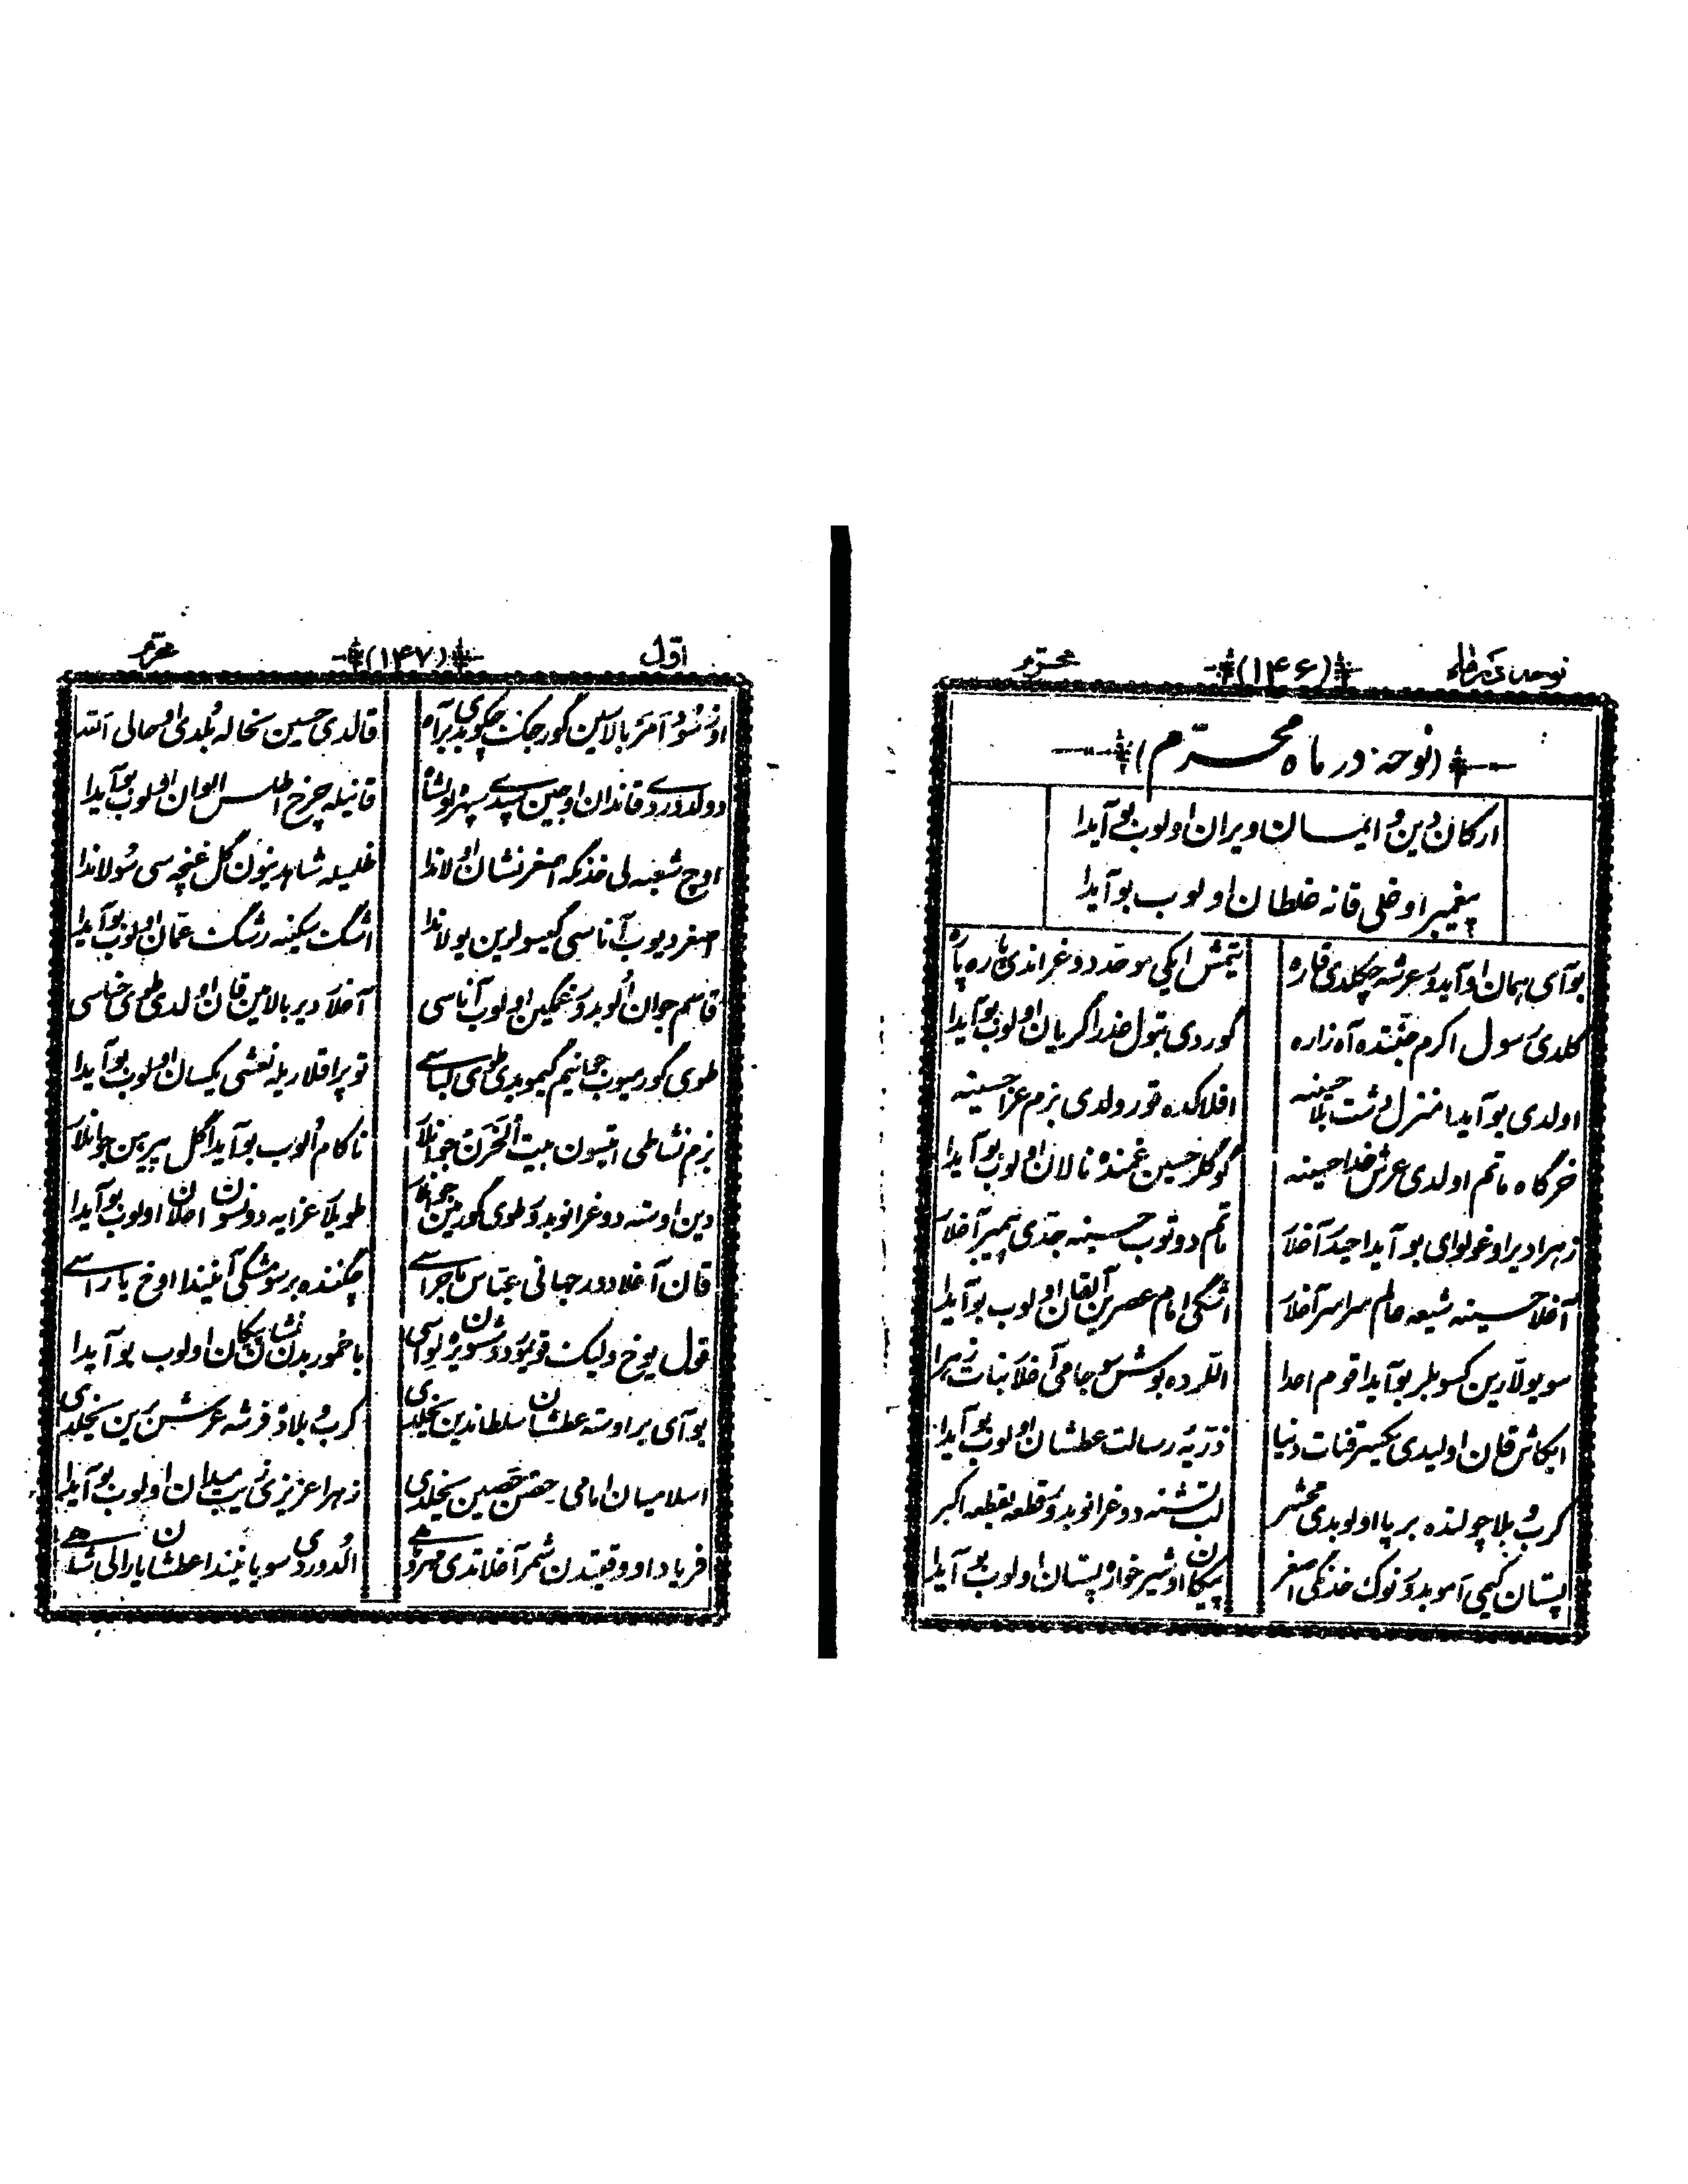 محرم (۱۴۶)
(نوحه در ماه محرّم)
ارکان دین و ایمان ویران اولوب بو آیدا
پیغمبر اوغلی قانه غلطان اولوب بو آیدا
بو آی همان او آیدور عرشه چکلدی قاره
یتمش ایکی موحد دوغراندی پاره پاره
گلدی رسول اکرم جنتده آه زاره
گوردی بتول عذرا گریان اولوب بو آیدا
اولدی بو آیدا منزل دشت بلا حسینه
افلاکده قورولدی بزم عزا حسینه
خرگاه ماتم اولدی عرش خدا حسینه
گوگلر حسین غمنده نالان اولوب بو آیدا
زهرا دیر اوغول وای بو آیدا حیدر آغلار
ماتم دوتوب حسینه جدی پیمبر آغلار
آغلار حسینه شیعه عالم سراسر آغلار
اشگی امام عصرین آلقان اولوب بو آیدا
سو یولارین کسوبلر بو آیدا قوم اعدا
اللرده بوش سو جامی آغلار بنات زهرا
ایکاش قان اولیدی یکسر فنات دنیا
ذریه رسالت عطشان اولوب بو آیدا
کرب و بلا چولنده برپا اولوبدی محشر
لب تشنه دوغرانوبدور قطعه بقطعه اکبر
پستان کیمی آموبدور نوک خدنگی اصغر
پیکان او شیرخواره پستان اولوب بو آیدا
اوّل (۱۴۷) محرم
قالدی حسین نحاله بلدی او حالی الله
دولدوردی قاندان اوجین سپدی سپهره اول شاه
قانیله چرخ اطلس الوان اولوب بو آیدا
اوچ شعبه لی خدنگه اصغر نشان اولاندا
غلیله شاهدینون گل غنچه سی سولاندا
اصغر دیوب آناسی گیسولرین یولاندا
اشگ سکینه رشگ عمان اولوب بو آیدا
قاسم جوان اولوبدور غمگین اولوب آناسی
آغلار دیر بالامین قان اولدی طوی حناسی
طوی گورمیوب جانیم گیموبدی طوی لباسی
توپراقلاریله نعشی یکسان اولوب بو آیدا
بزم نشاطی ایتسون بیت الحزن جوانلار
ناکام اولوب بو آیدا گل پیرهن جوانلار
دین اوسته دوغرانوبدور طوی گورمین جوانلار
طویلار عزایه دونسون اعلان اولوب بو آیدا
قان آغلادور جهانی عباس ماجراسی
چگننده بر سو مشگی آلنیندا اوخ یاراسی
قول یوخ ولیک قویموز دوشسون یره لواسی
باخمور بدن نشان پیکان اولوب بو آیدا
بو آی یر اوسته عطشان سلطاندین یخیلدی
کرب و بلاده فرشه عرش برین یخیلدی
اسلامیان امامی حصن حصین یخیلدی
زهرا عزیزی زینت میدان اولوب بو آیدا
الدوردی سو یانیندا عطشان یارالی شاهی